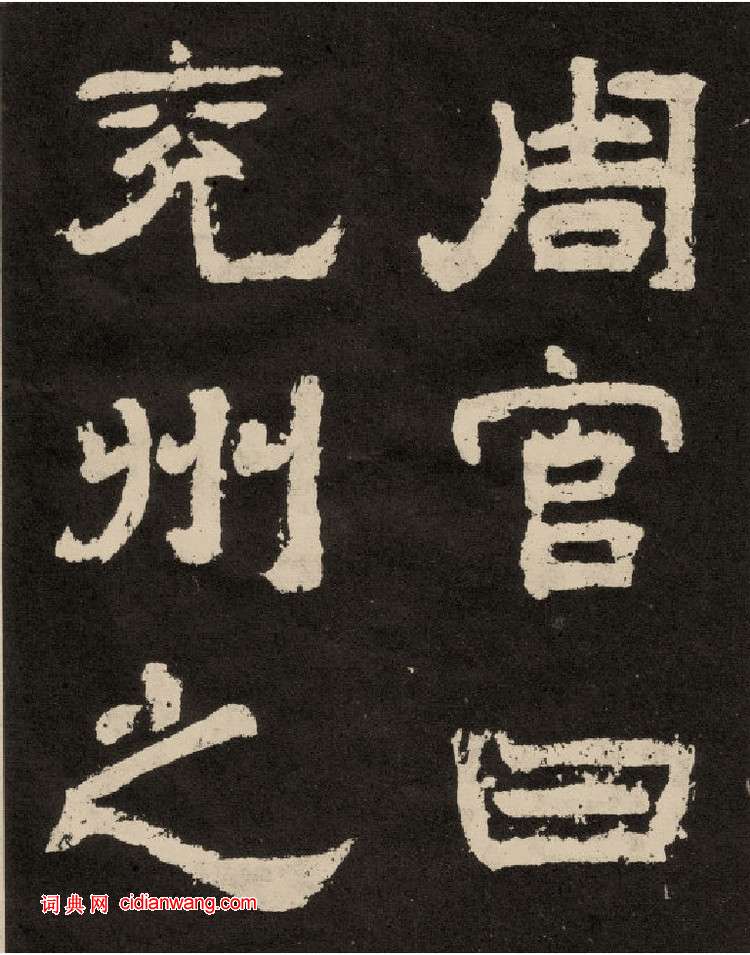 周官曰
兖州之
词典网 cidianwang.com